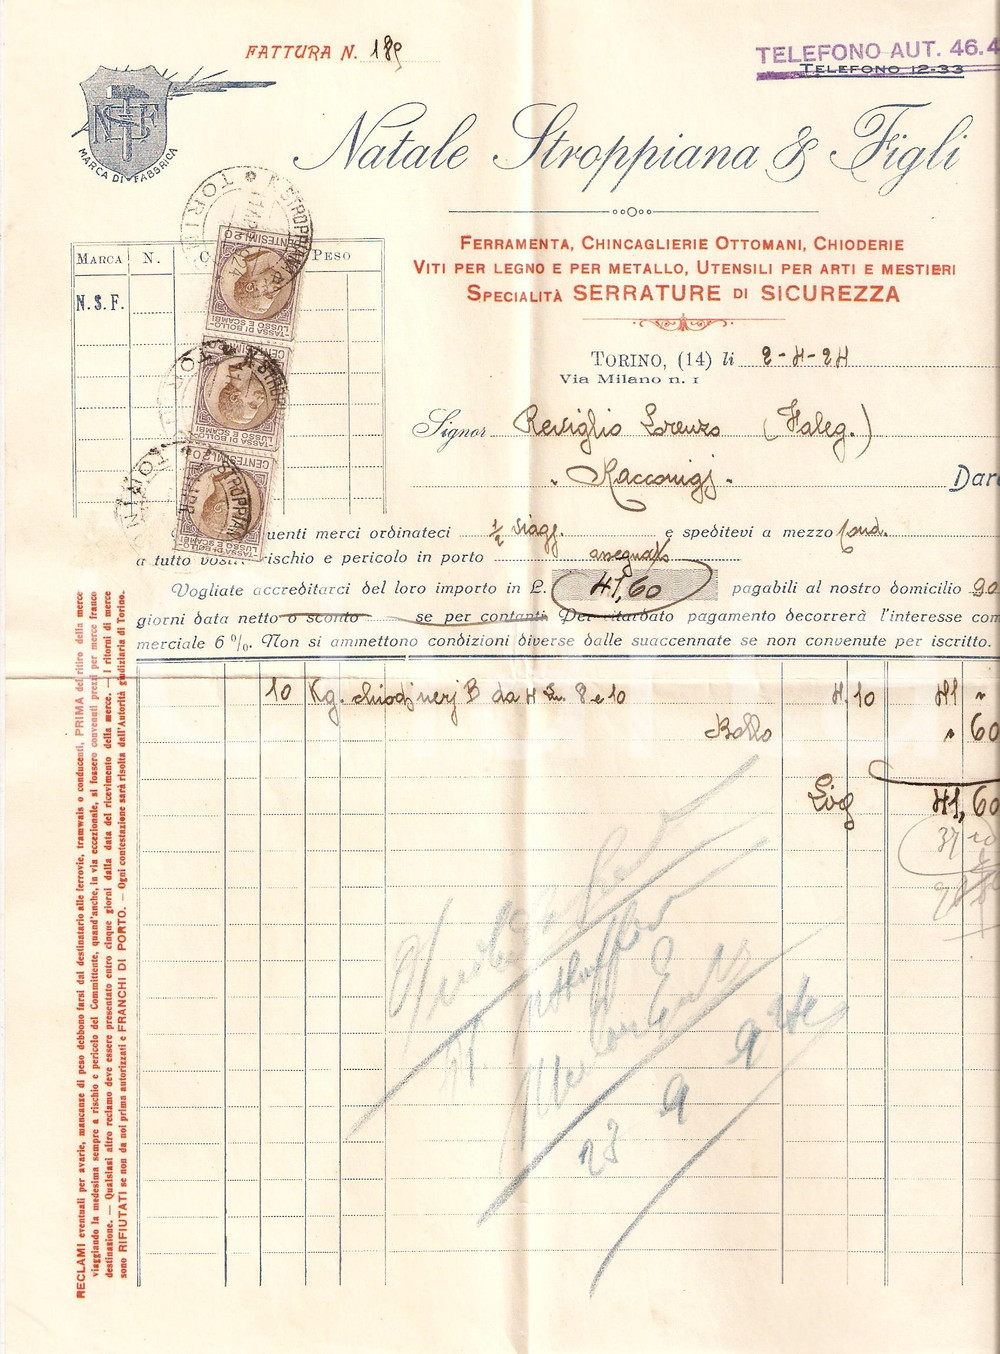 FATTURA N. 189
TELEFONO AUT. 46.4
TELEFONO 12-33
NSF
MARCA DI FABBRICA
Natale Stroppiana & Figli
FERRAMENTA, CHINCAGLIERIE OTTOMANI, CHIODERIE
VITI PER LEGNO E PER METALLO, UTENSILI PER ARTI E MESTIERI
SPECIALITÀ SERRATURE DI SICUREZZA
MARCA N. C PESO
N.S.F.
CENTESIMI 20
TASSA DI BOLLO
LUSSO E SCAMBI
TASSA DI BOLLO
LUSSO E SCAMBI
CENTESIMI 20
TASSA DI BOLLO
LUSSO E SCAMBI
TORINO, (14) li 2-4-24
Via Milano n. 1
Signor Reviglio Lorenzo (Faleg.)
Racconigj Dare
uenti merci ordinateci ½ viagg. e speditevi a mezzo cond.
a tutto vostr rischio e pericolo in porto assegnato
Vogliate accreditarci del loro importo in £. 41,60 pagabili al nostro domicilio 90
giorni data netto o sconto se per contanti Per ritardato pagamento decorrerà l'interesse com
merciale 6 %. Non si ammettono condizioni diverse dalle suaccennate se non convenute per iscritto.
10 Kg. chiodj nerj B da 4 Ln. 8 e 10 4.10 41 "
Bollo " 60
41,60
23 9 924
RECLAMI eventuali per avarie, mancanze di peso debbono farsi dal destinatario alle ferrovie, tramwais o conducenti, PRIMA del ritiro della merce
viaggiando la medesima sempre a rischio e pericolo del Committente, quand'anche, in via eccezionale, si fossero convenuti prezzi per merce franco
destinazione. — Qualsiasi altro reclamo deve essere presentato entro cinque giorni dalla data del ricevimento della merce. — I ritorni di merce
sono RIFIUTATI se non da noi prima autorizzati e FRANCHI DI PORTO. — Ogni contestazione sarà risolta dall'Autorità giudiziaria di Torino.